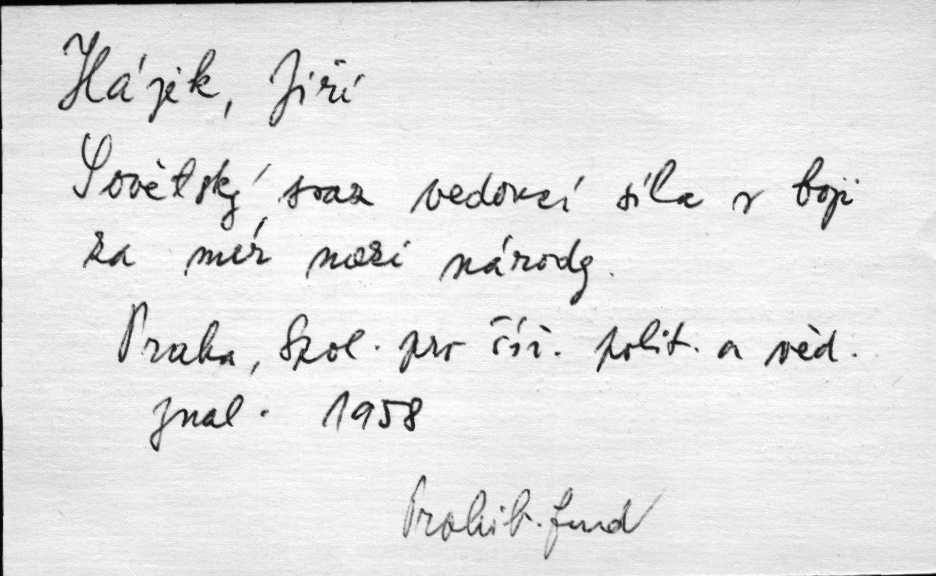 Hájek, Jiří
Sovětský svaz vedoucí síla v boji
za mír mezi národy.
Praha, Spol. pro šíř. polit. a věd.
znal. 1958
Prohib. fond